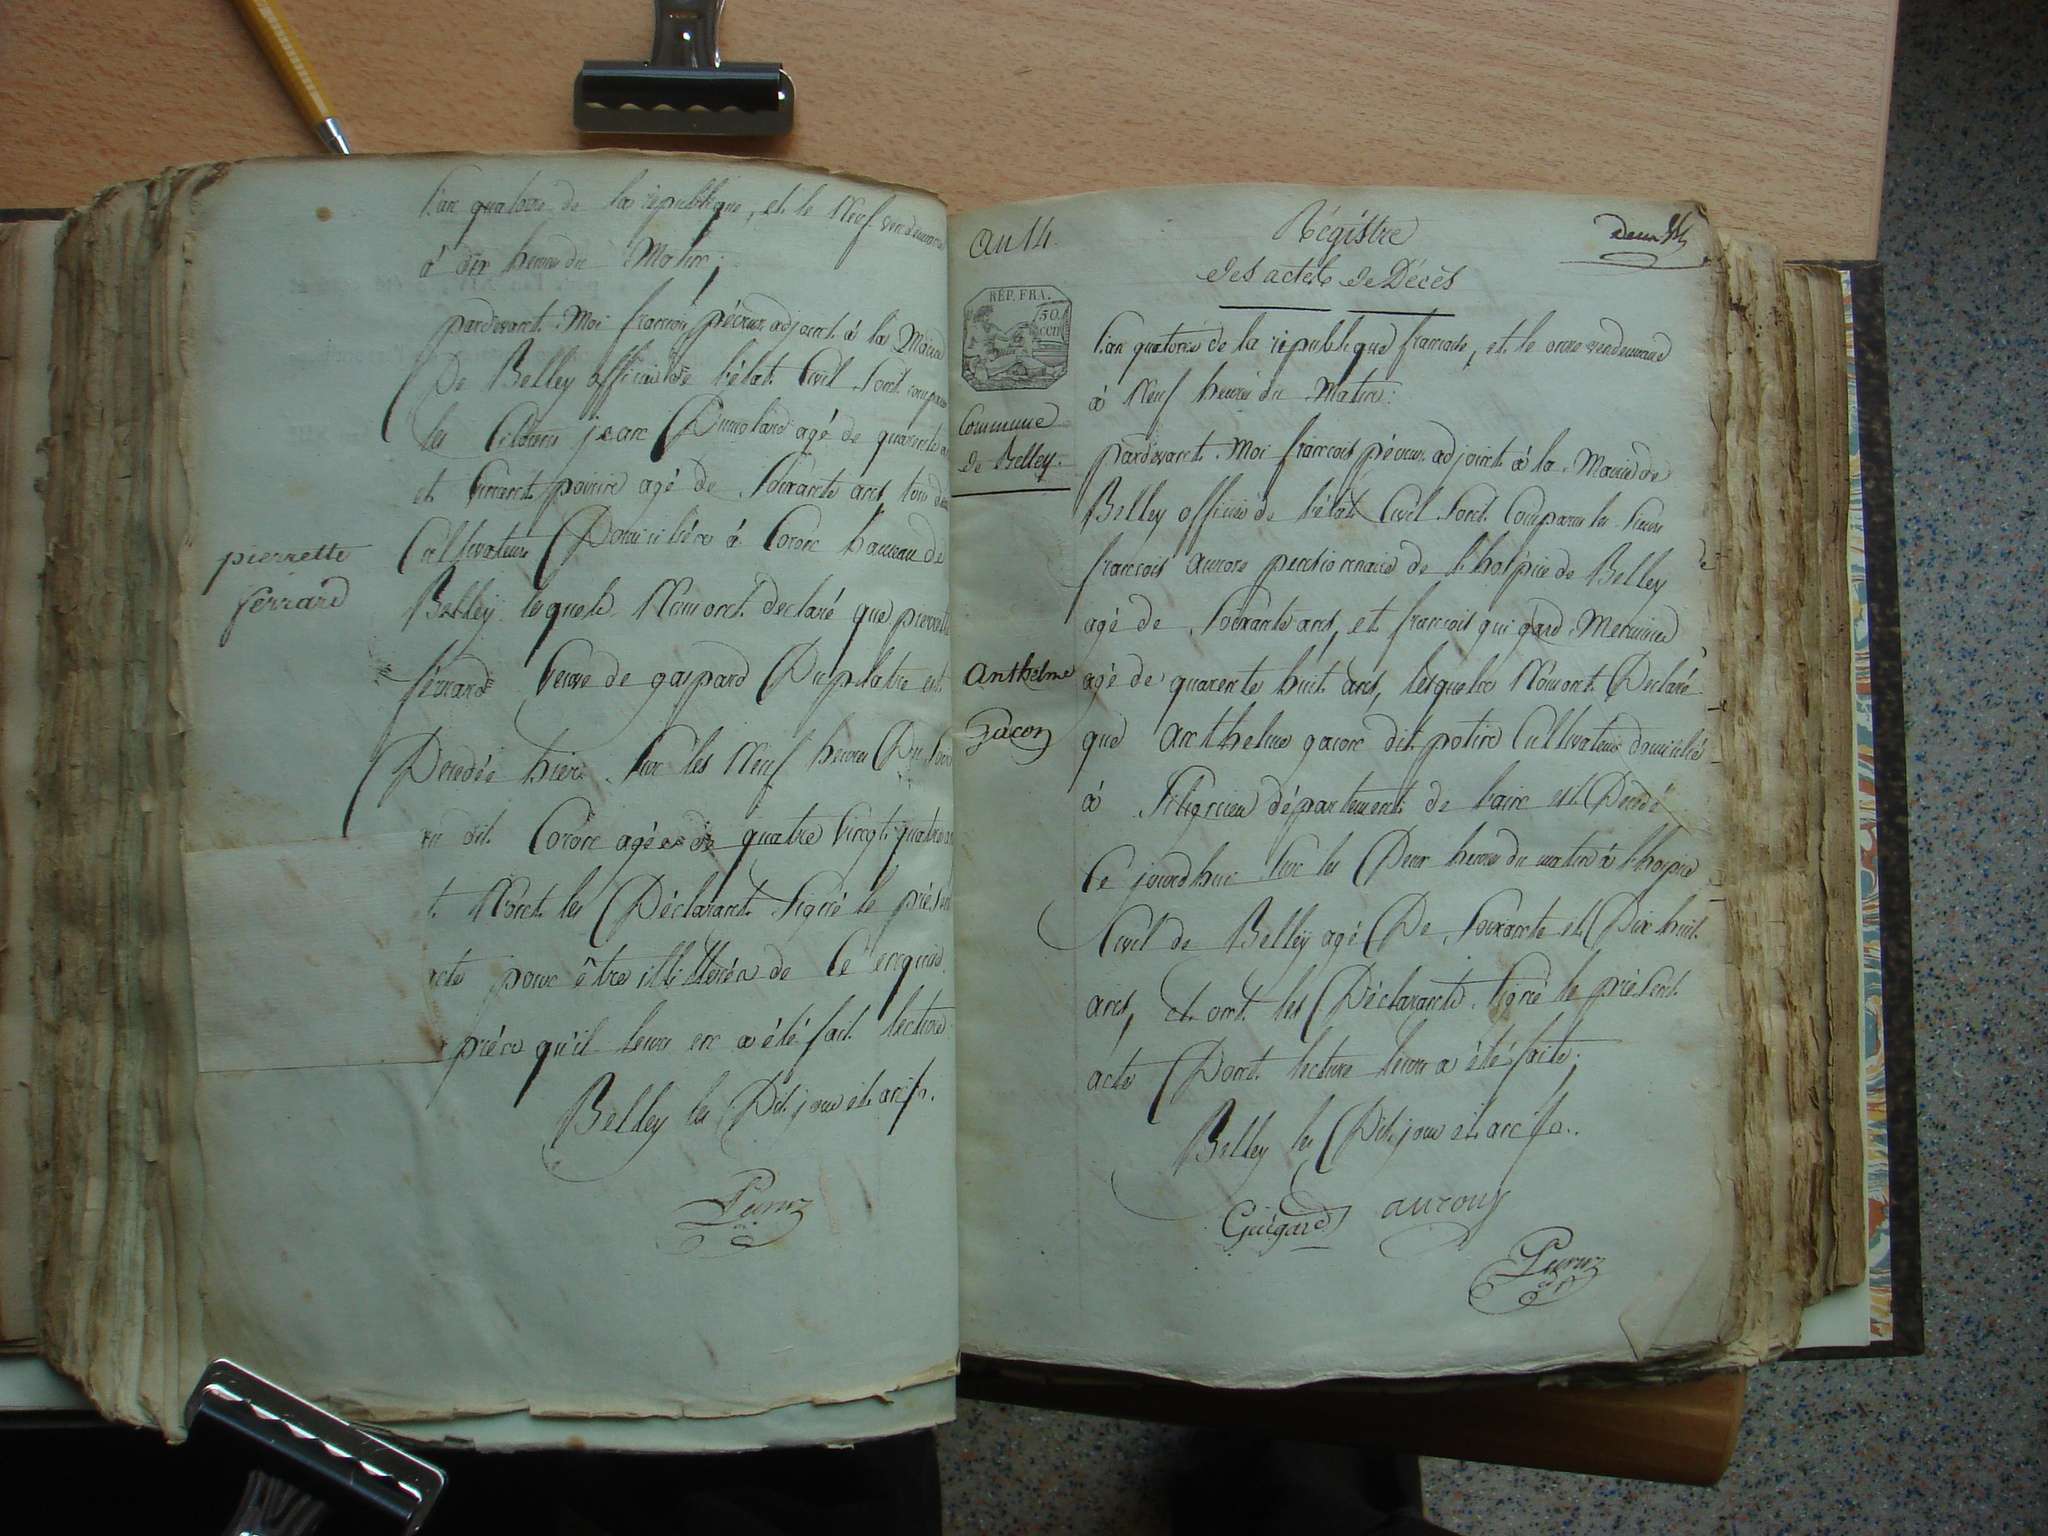 l'an quatorze de la république, et le Neuf vendemiaire
à dix heures du Matin;
pardevant Moi françois péroux adjoint à la Mairie
De Belley officier de l'état Civil sont comparus
les Citoiens jean Dumolard agé de quarente
et Vincent poirier agé de Soixante ans tous deux
Cultivateurs Domiciliés à Coron hameau de
pierrette
ferrard
Belley lesquels M'ont declaré que pierrette
ferrard Veuve de gaspard Duplatre est
Decedée hier Sur les Neuf heures Du Soir
au dit Coron agée de quatre Vingt quatre
et N'ont les Déclarant Signé le présent
acte pour être illitterés de Ce enquis
après qu'il leur en a été fait lecture
Belley les Dit jour et an
An 14.
Régistre
des actes de Décès
RÉP. FRA.
50
Commune
de Belley.
l'an quatorze de la république francaise, et le onze vendemiaire
à Neuf heures du Matin:
pardevant Moi francois péroux adjoint à la Mairie de
Belley officier de l'état Civil Sont Comparus les Sieurs
francois aurore pensionnaire de l'hospice de Belley
agé de Soixante ans, et francois guigard Menuisier
Anthelme
Gacon
agé de quarente huit ans, lesquels M'ont Declaré
que anthelme gacon dit potin Cultivateur domicilié
à département de l'ain est Decedé
Ce jourd'hui Sur les Deux heures du matin à l'hospice
Civil de Belley agé De Soixante et Dix huit
ans, Et ont les Déclarants Signé le présent
acte Dont lecture leur a été faite;
Belley les Dit jour et an
Guigard